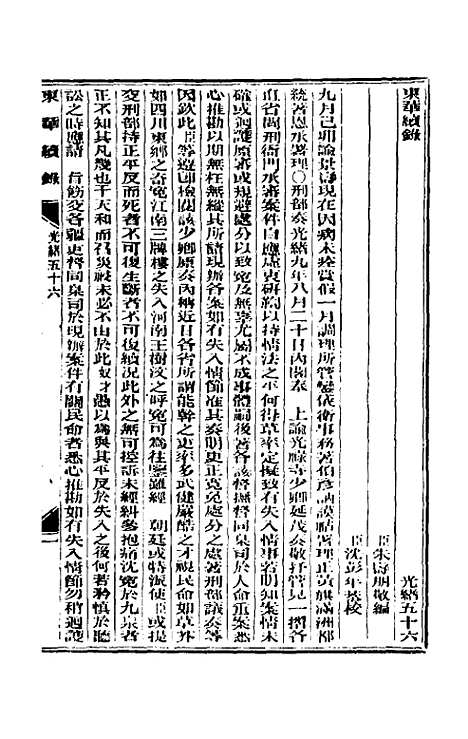 東華續錄　光緒五十六
臣朱壽朋敬編
臣沈彭年恭校
九月己卯諭景壽現在因病未痊賞假一月調理所管鑾儀衛事務著伯彥訥謨祜署理正黃旗滿洲都
統著恩承署理〇刑部奏光緒九年八月二十日內閣奉　上諭光祿寺少卿延茂奏敬抒管見一摺各
直省問刑衙門承審案件自應虛衷研鞫以持情法之平何得草率定擬致有失入情事若明知案情未
確或迴護原審或規避處分以致冤及無辜尤屬不成事體嗣後著各該督撫督同臬司於人命重案悉
心推勘以期無枉無縱其所請現辦各案如有失入情節准其奏明更正寬免處分之處著刑部議奏等
因欽此臣等遵卽檢閱該少卿原奏內稱近日各省所謂能幹之吏率多武健嚴酷之才視民命如草芥
如四川東鄉之奇冤江南三牌樓之失入河南王樹汶之呼冤可為往鑒雖經　朝廷或特派使臣或提
交刑部持正平反而死者不可復生斷者不可復續況此外之無可控訴未經糾參抱痛沈冤於九泉者
正不知其凡幾也干天和而召災祲未必不由於此奴才愚以為與其平反於失入之後何若矜慎於聽
訟之時應請　旨飭交各疆吏督同臬司於現辦案件有關民命者悉心推勘如有失入情節勿稍迴護
東華續錄　光緒五十六　一